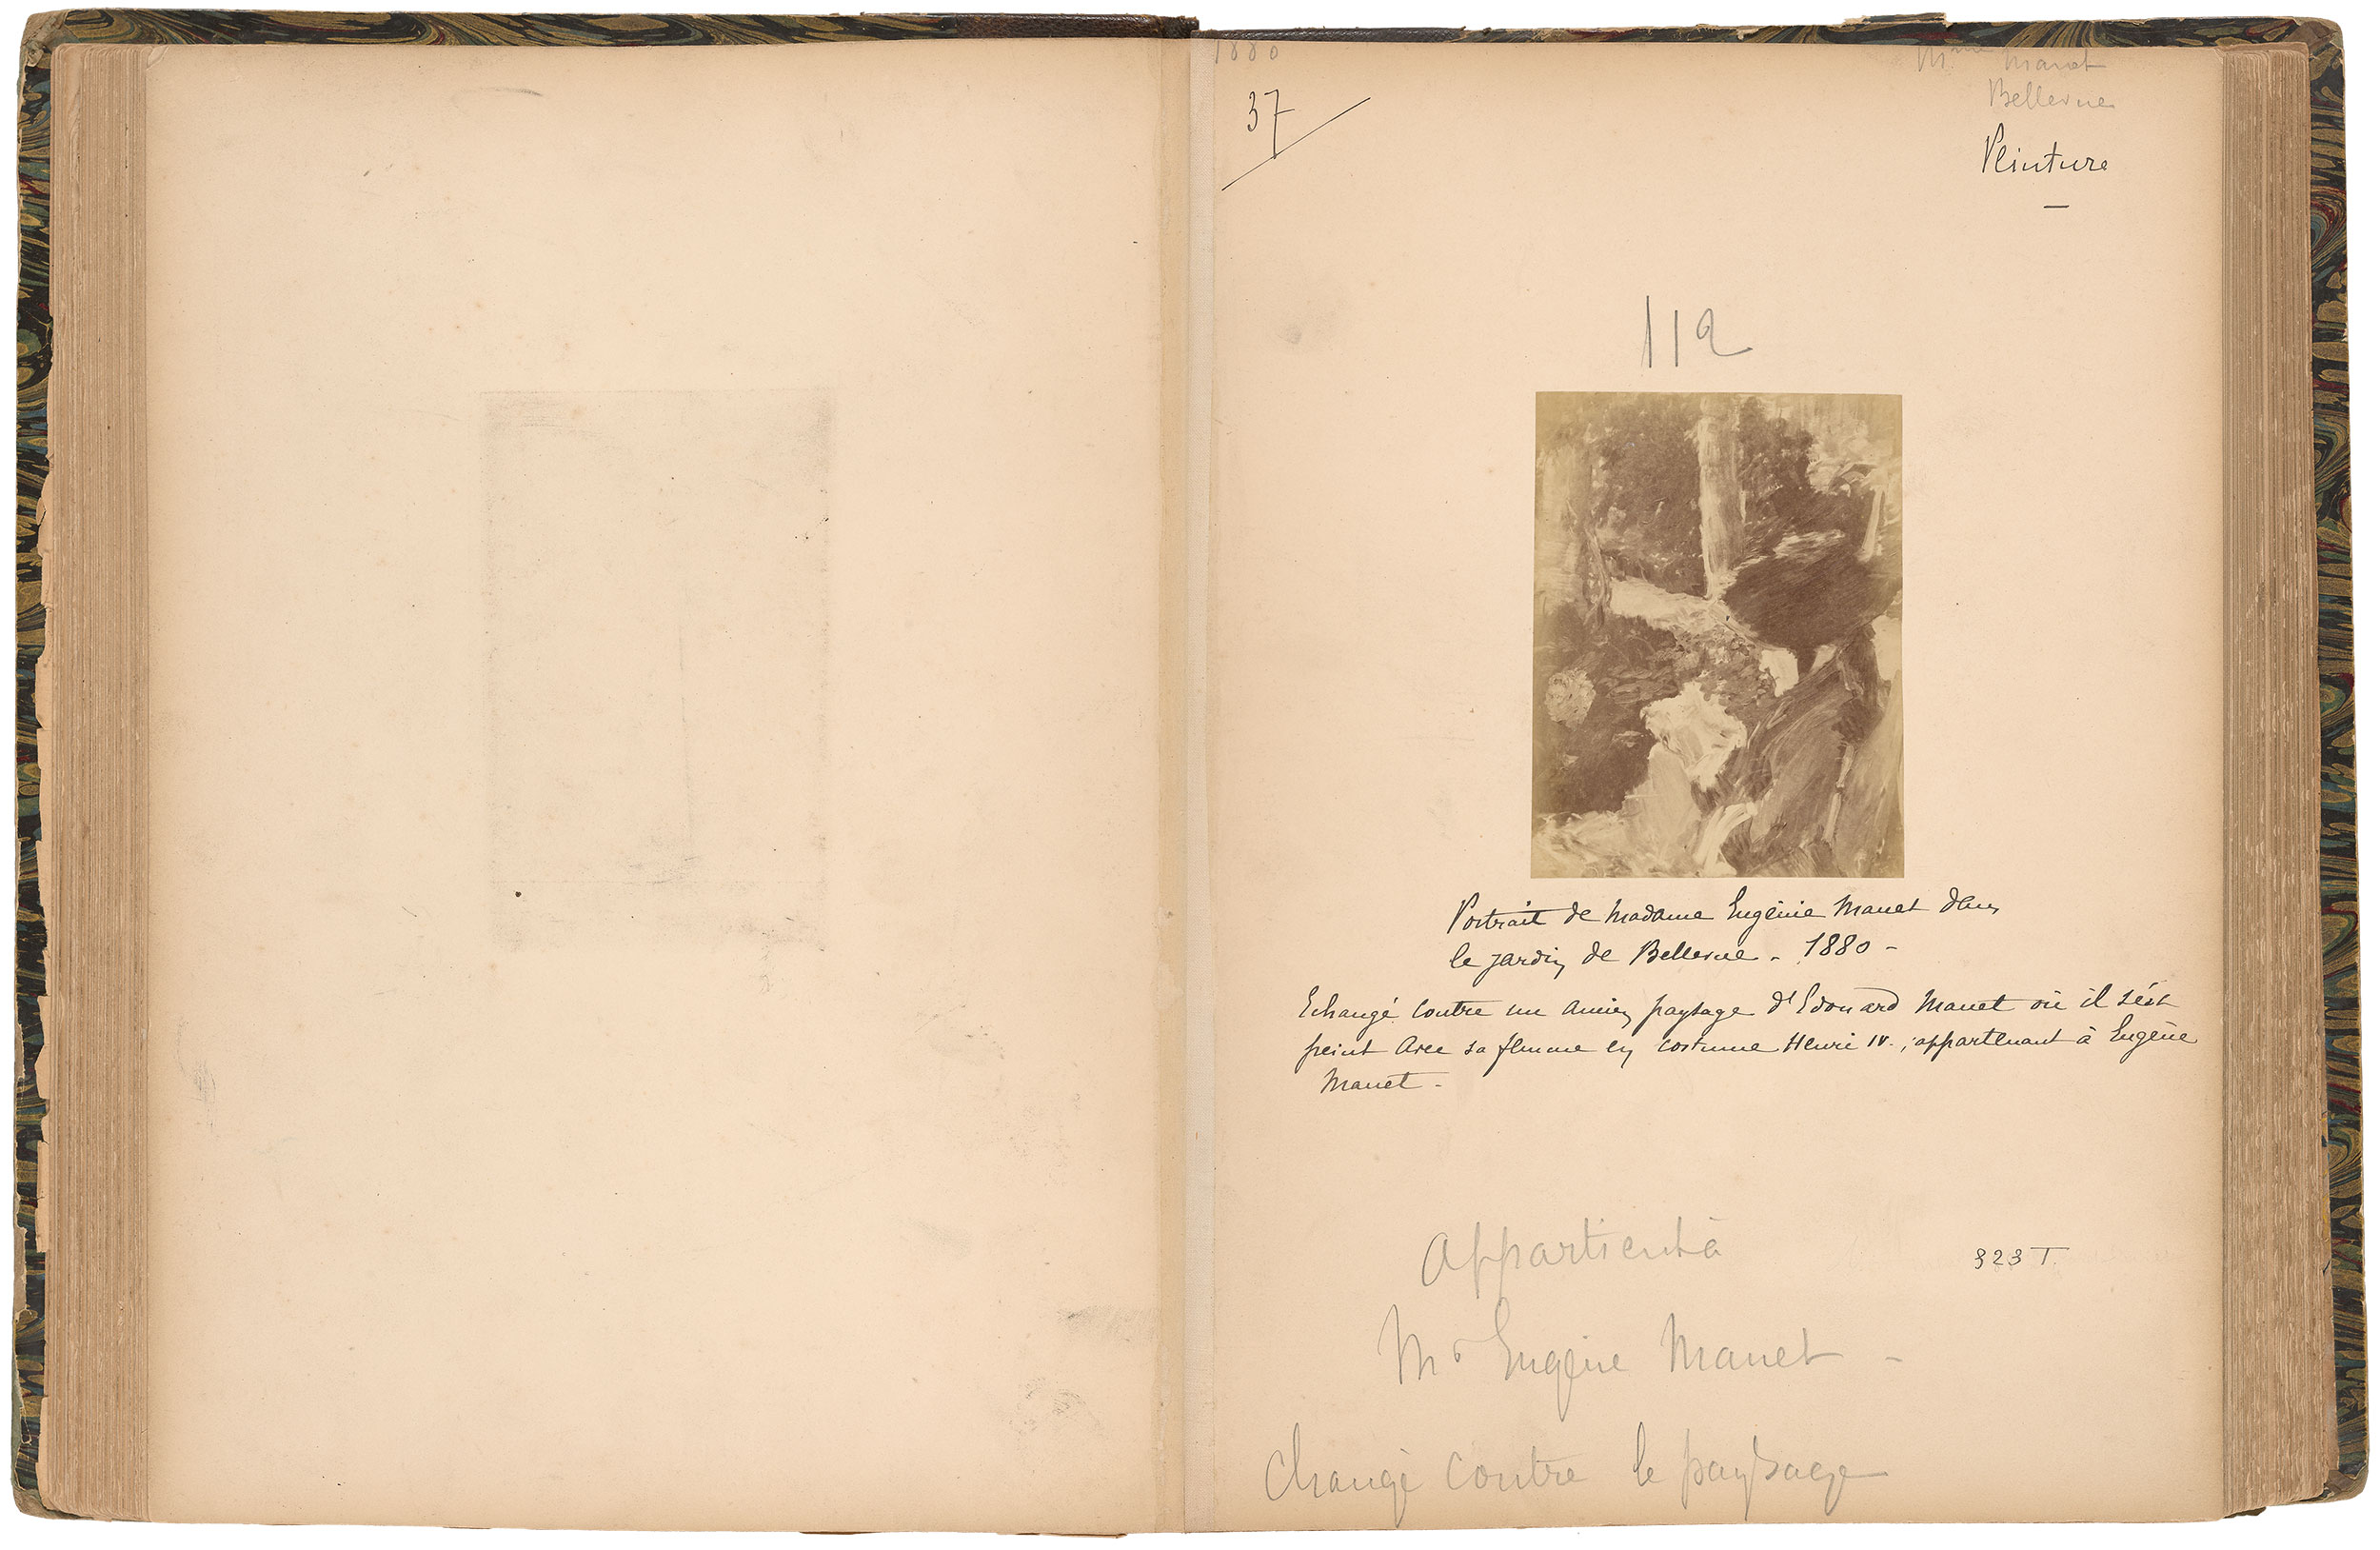 1880
Mme Manet
37
Bellevue
Peinture
112
Portrait de Madame Eugénie Manet dans
le jardin de Bellevue - 1880 -
Echangé contre un ancien paysage d'Edouard Manet où il s'est
peint avec sa femme en costume Henri IV. ; appartenant à Eugène
Manet -
Appartient à
323 T.
Mr Eugène Manet -
changé contre le paysage